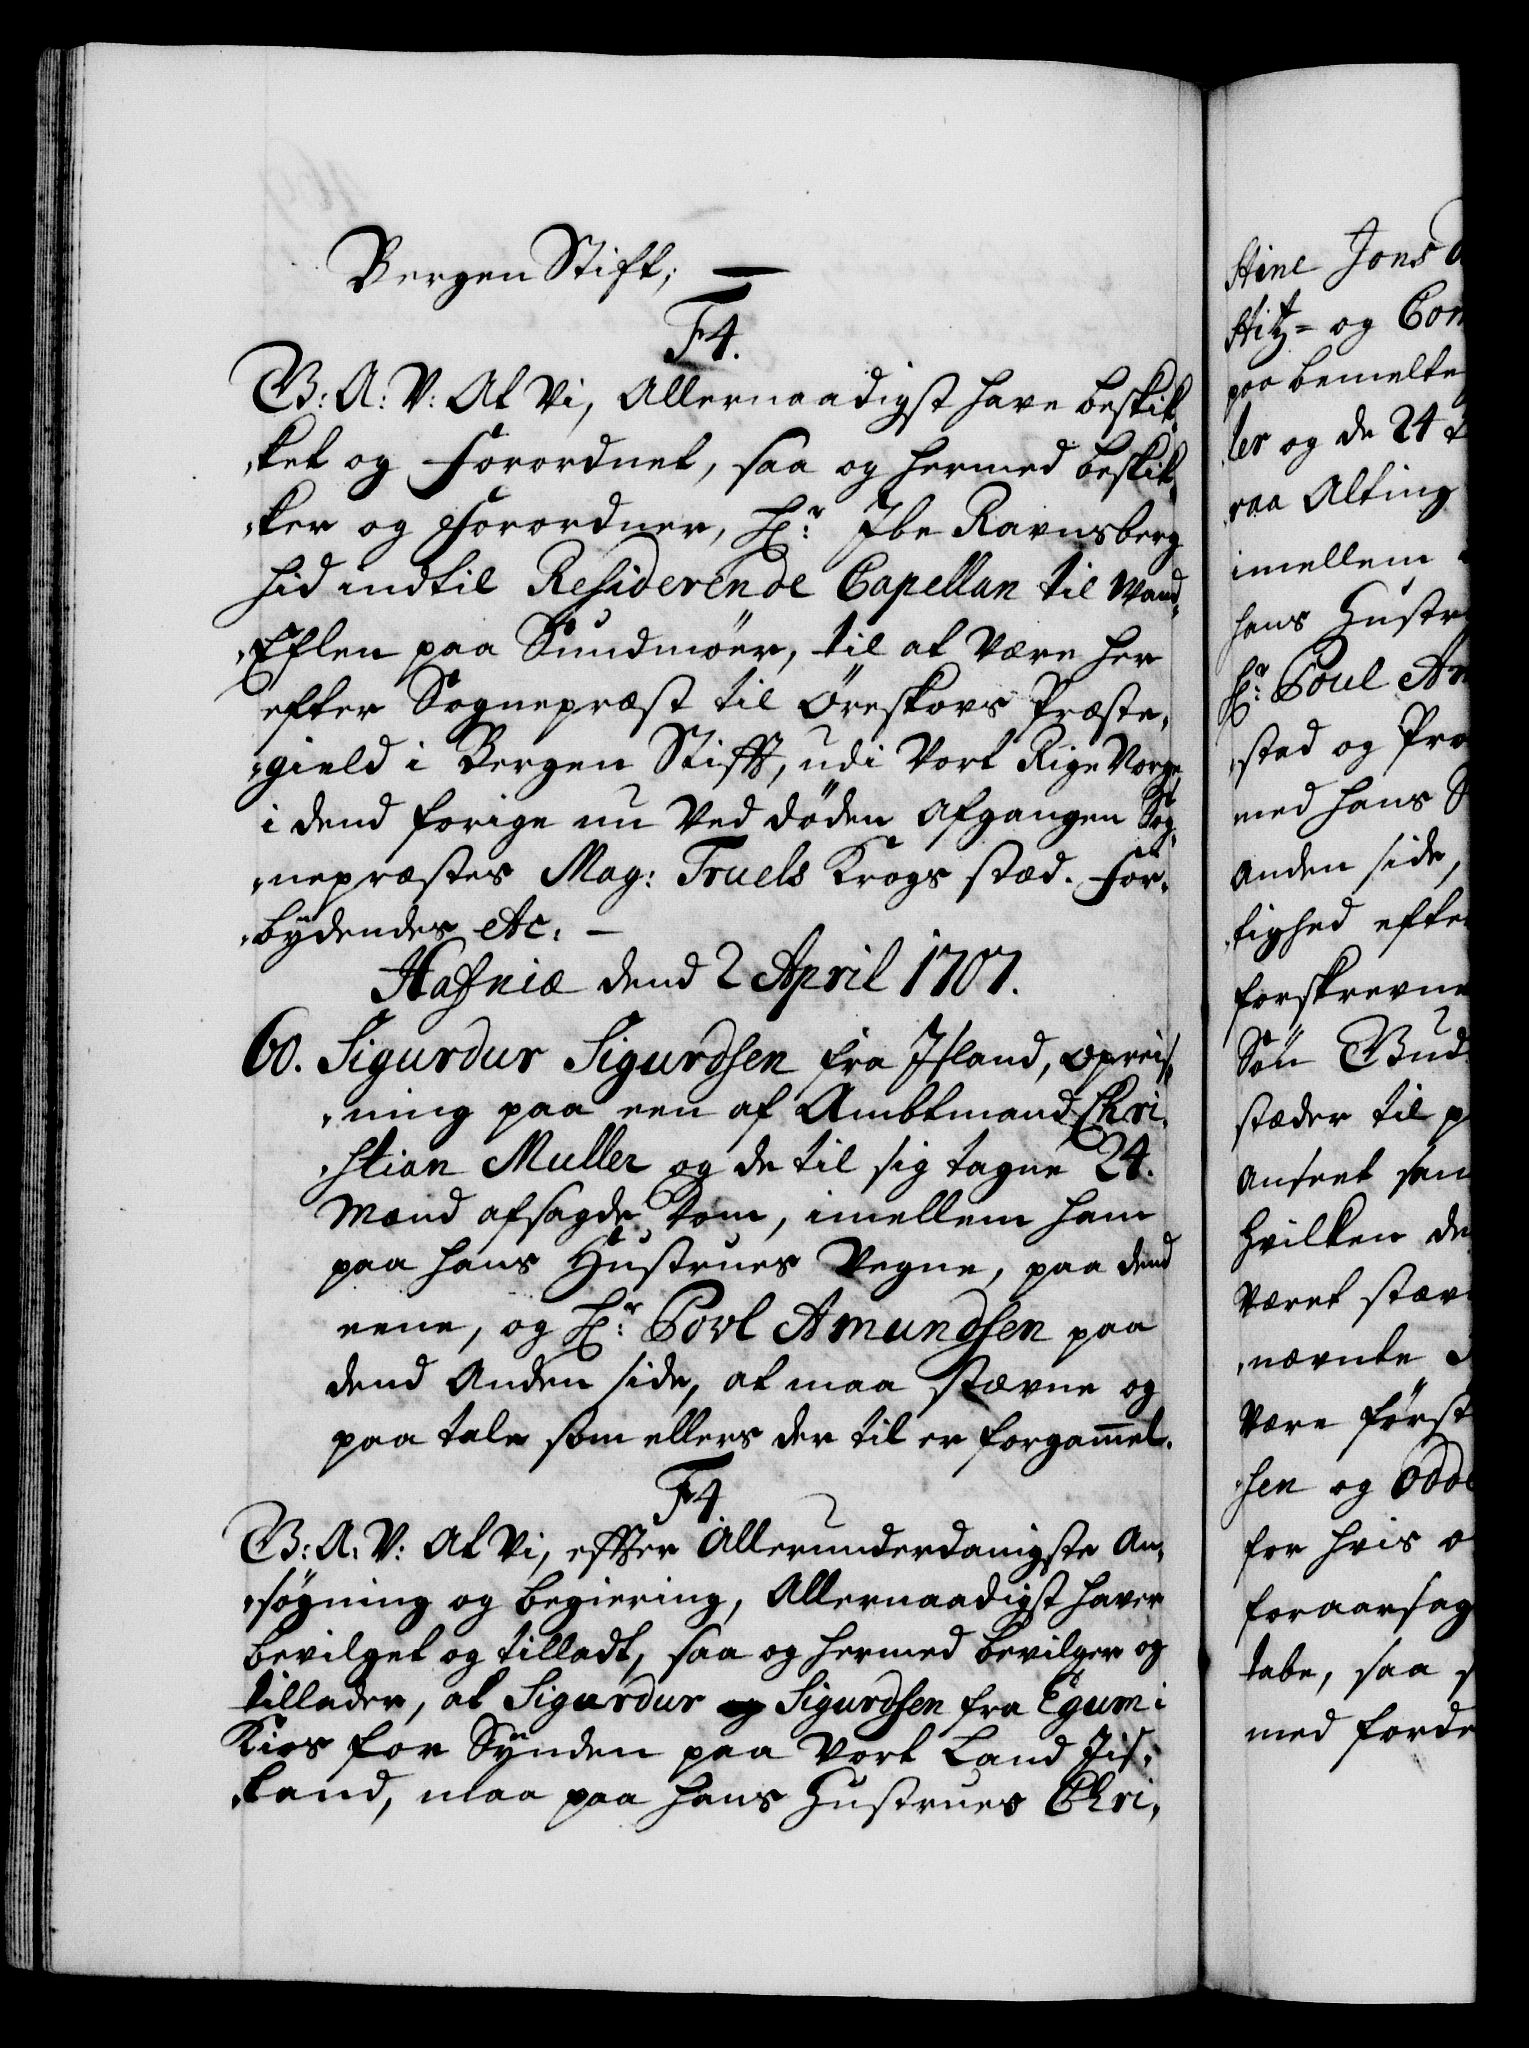 Bergen Stift; —
F4.
G: A: V: At Vi, Allernaadigst have beskik-
ket og forordnet, saa og hermed beskik-
ker og forordner, Hr: Ibe Ravnsberg
hid indtil Residerende Capellan til Wand-
Eflen paa Sundmöer, til at være her
efter Sognepræst til Öreskovs Præste-
gield i Bergen Stifft, udi Vort Rige Norge
i dend forige nu ved döden afgangen Sog-
nepræstes Mag: Truels Krogs stæd. For-
bydendes etc: —
Hafniæ dend 2 April 1707.
60. Sigurdur Sigurdsen fra Island, opreis-
ning paa een af Ambtmand Chri-
stian Muller og de til sig tagne 24.
Mænd afsagde dom, imellem ham
paa hans Hustrues Vegne, paa dend
eene, og Hr: Povl Amundsen paa
dend anden side, at maa stævne og
paa tale som ellers der til er forgam̄el.
F4
G: A: V: At Vi, effter Allerunderdanigste An-
søgning og begiering, Allernaadigst haver
bevilget og tilladt, saa og hermed bevilger og
tillader, at Sigurdur Sigurdsen fra Egum i
Kios for Synden paa Vort Land Iis-
land, maa paa hans Hustrues Chri-
stine Jons
stitz= og Com
paa bemelte
ler og de 24
raa Alting
imellem
hans Hustr
Hr: Poul Am
stad og Pro
med hans S
anden side,
tighed efte
forskrevne
Søn Gud
stæder til p
anseet
hvilken de
været stæv
nævnte
være først
sen og Odd
for hvis o
foraarsag
tabe, saa
med forde